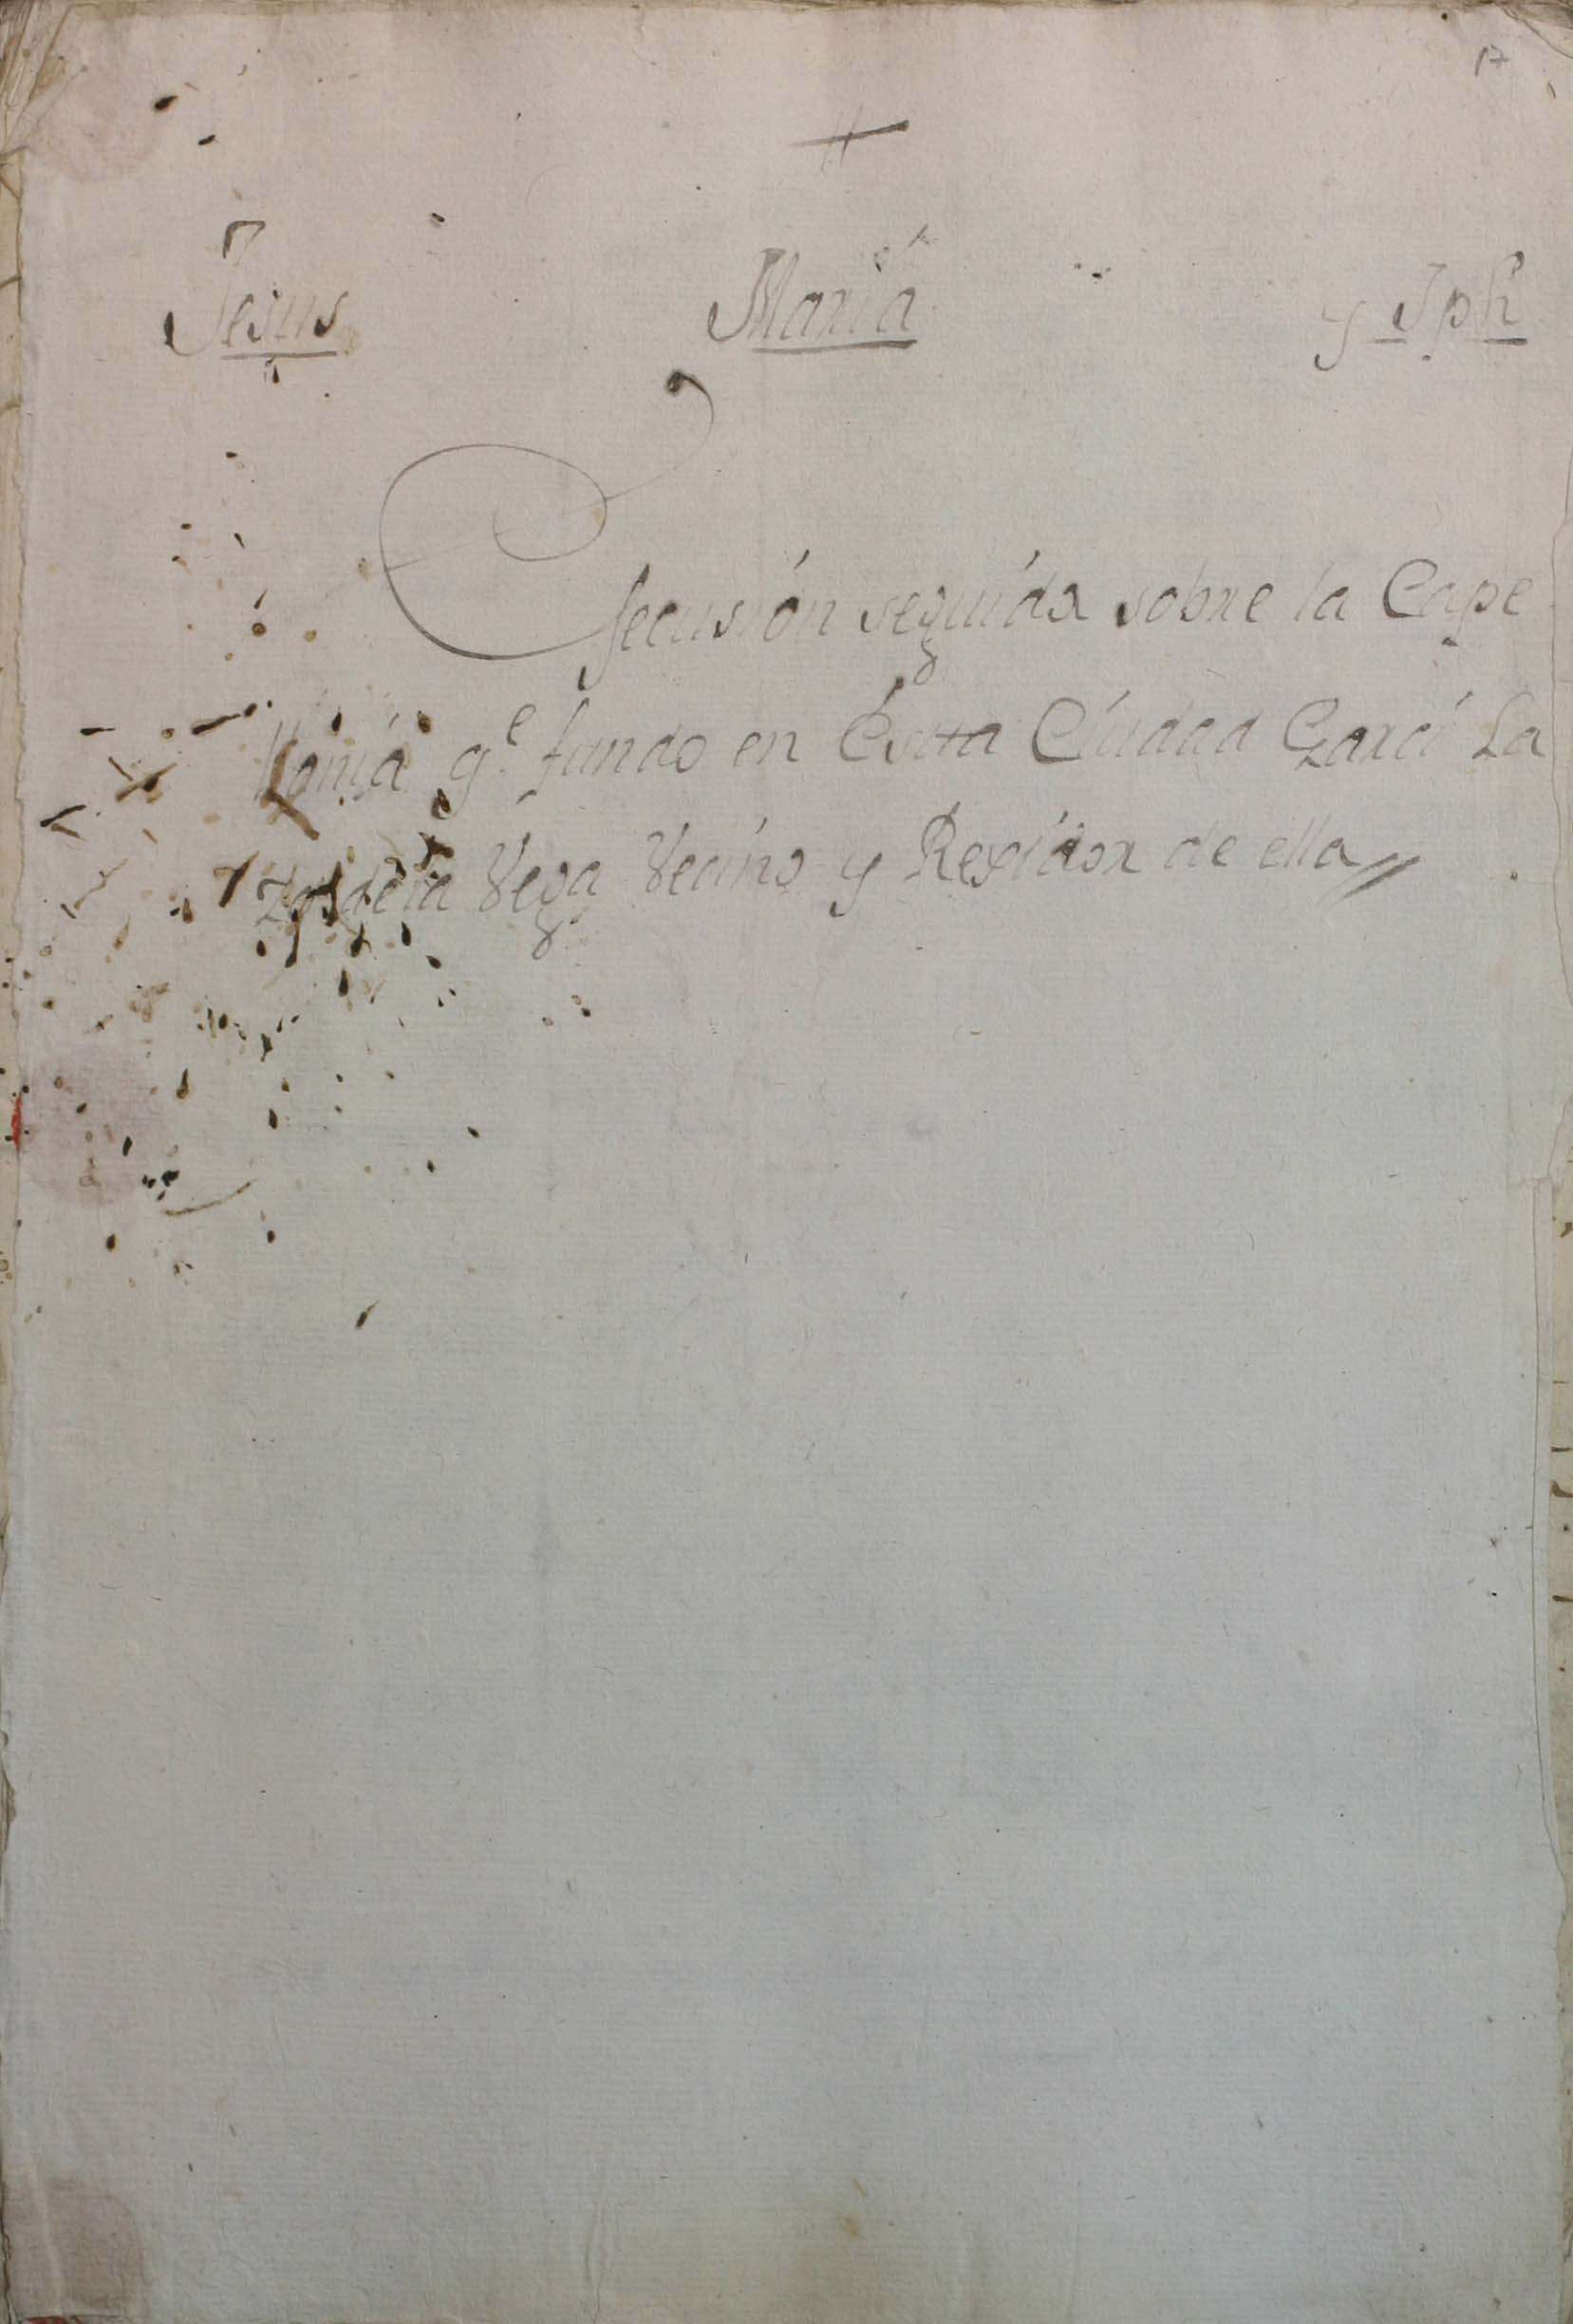 17
+
Jesus Maria y Jph
Esecusión seguida sobre la Cape
llania q.e fundo en Estta Ciudad Garcí La
zo de la Vega Vecino y Rexidor de ella